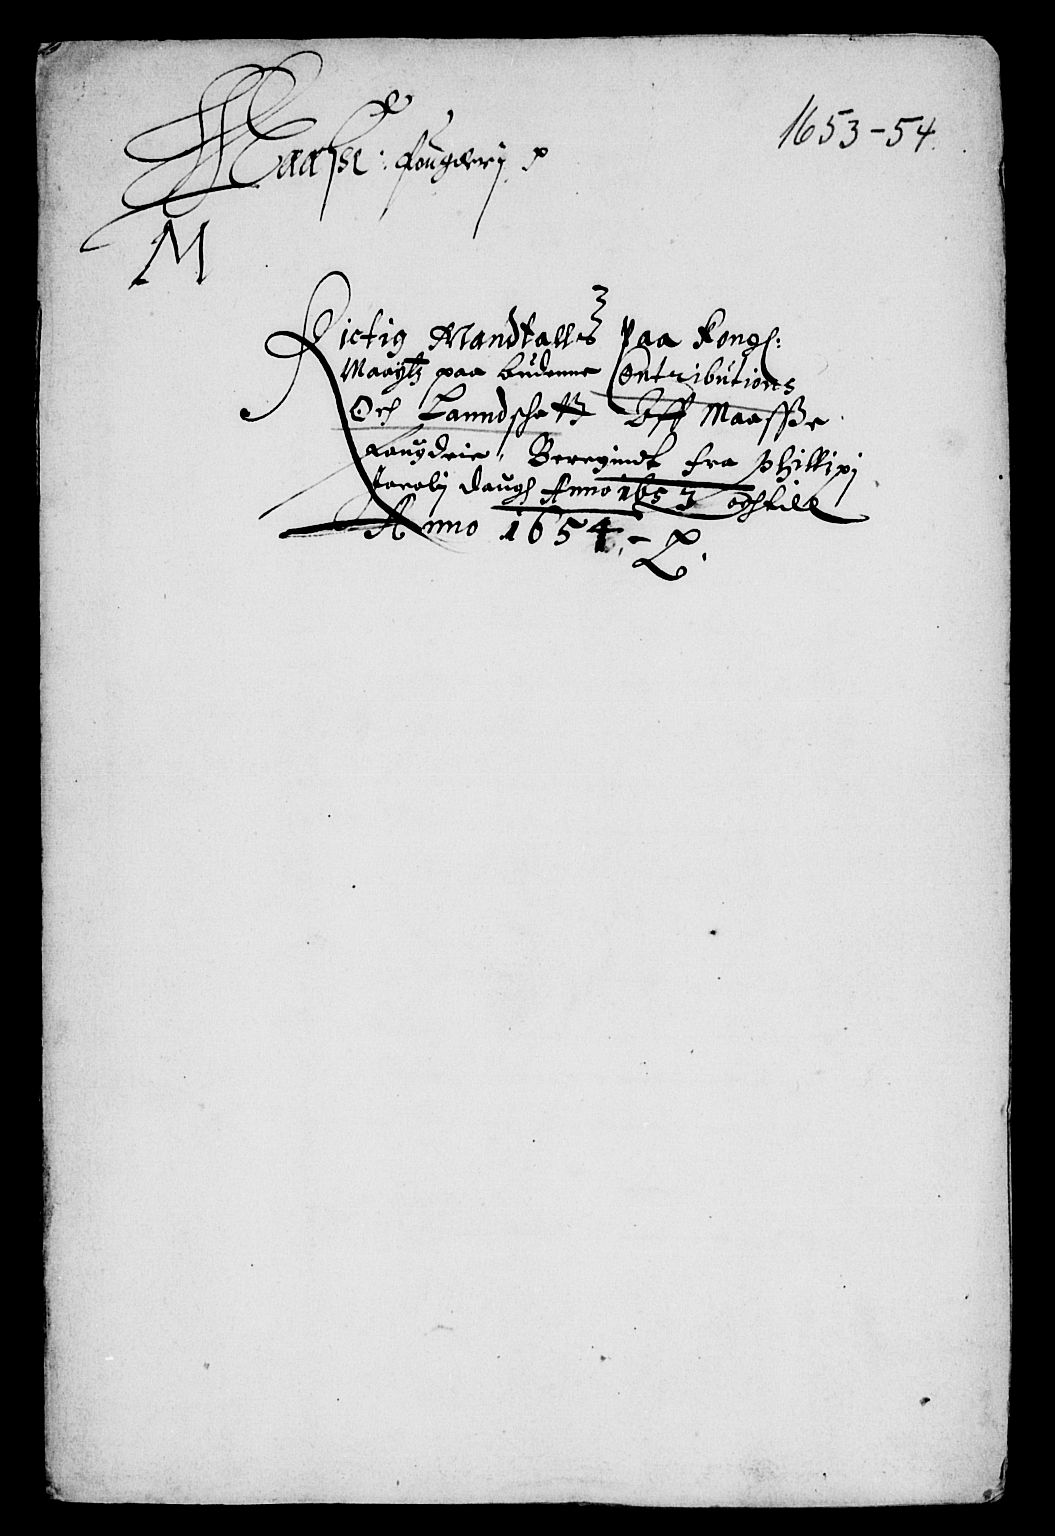 1653-54
Maasse: Fougderij
M
Rictig Mandtall Paa Kongl:
Maaÿtz paa budenne Contributions
Och Lanndschatt Aff Maasse
Fougderie, Beregindt fra Phillipj
Jacobj daugh Anno 1653 och till
Anno 1654.